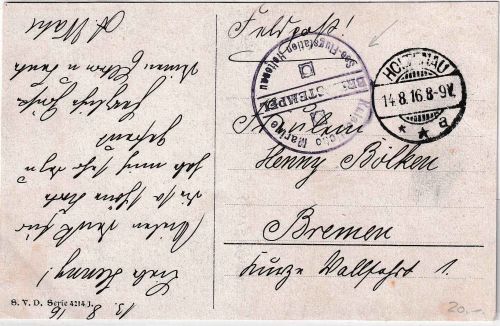 Feldpost!
HOLTENAU
14.8.16.8-9V.
* * a
See-Flugstation Holtenau
BRIEFSTEMPEL
Kais.
Marine
Fräulein
Henny Bölken
Bremen
Kurze Wallfahrt 1.
13. 8. 16
Lieb Henny!
Vielen Dank für
die so schöne Karte
hab mich sehr dazu
gefreut
Herzliche Grüße
S. V. D. Serie 4214 J.
20.-